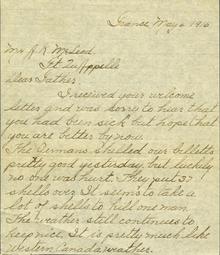 France May 6 1916
Mr A R McLeod
Ft Qu'Appelle
Dear Father,
I received your welcome
letter and was sorry to hear that
you had been sick but hope that
you are better by now.
The Germans shelled our billets
pretty good yesterday but luckily
no one was hurt. They put 37
shells over. It seems to take a
lot of shells to kill one man.
The weather still continues to
keep nice. It is pretty much like
Western Canada weather.